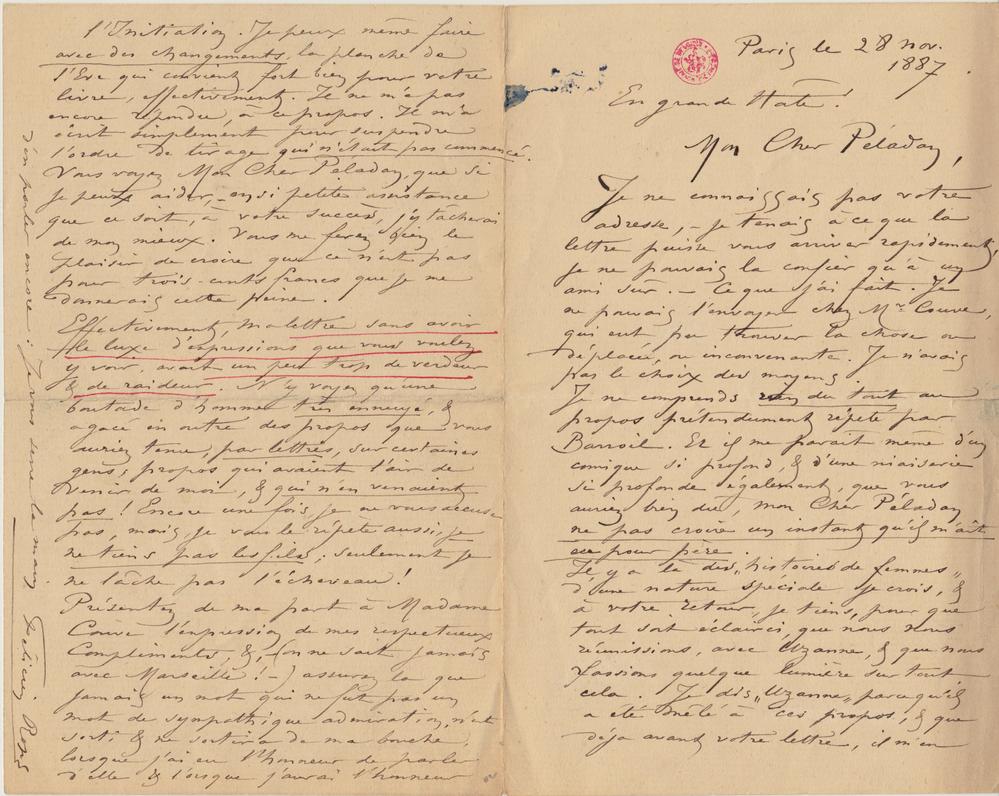 Paris le 28 nov.
1887.
En grande Hâte !
Mon Cher Péladan,
Je ne connaissais pas votre
adresse, – je tenais à ce que la
lettre puisse vous arriver rapidement,
je ne pouvais la confier qu'à un
ami sûr. – Ce que j'ai fait. Je
ne pouvais l'envoyer chez Mr Couve,
qui eut pu trouver la chose ou
déplacée, ou inconvenante. Je n'avais
pas le choix des moyens.
Je ne comprends rien du tout au
propos prétendument répété par
Barroil. Et il me parait même d'un
comique si profond, & d'une niaiserie
si profonde également, que vous
auriez bien dû, mon Cher Péladan
ne pas croire un instant qu'il m'aît
eu pour père.
Il y a là des „histoires de femmes„
d'une nature spéciale je crois, &
à votre retour, je tiens, pour que
tout soit éclairci, que nous nous
réunissions, avec Uzanne, & que nous
fassions quelque lumière sur tout
cela. Je dis „Uzanne„ parce qu'il
a été mêlé à ces propos, & que
déja avant votre lettre, il m'en
l'Initiation. Je peux même faire
avec des changements, la planche de
l'Eve qui convient fort bien pour votre
livre, effectivement. Il ne m'a pas
encore répondu, à ce propos. Il m'a
écrit simplement pour suspendre
l'ordre de tirage qui n'était pas commencé.
Vous voyez Mon Cher Péladan, que si
je peux aider, – en si petite assistance
que ce soit, à votre succès, j'y tâcherai
de mon mieux. Vous me ferez bien le
plaisir de croire que ce n'est pas
pour trois-cents francs que je me
donnerais cette peine.
Effectivement, ma lettre sans avoir
le luxe d'expressions que vous voulez
y voir, avait un peu trop de verdeur
& de raideur. N'y voyez qu'une
boutade d'homme très ennuyé, &
agacé en outre des propos que vous
auriez tenu, par lettres, sur certaines
gens, propos qui avaient l'air de
venir de moi, & qui n'en venaient
pas ! Encore une fois, je ne vous accuse
pas, mais, je vous le répète aussi, je
ne tiens pas les fils, seulement je
ne lâche pas l'écheveau !
Présentez de ma part à Madame
Couve l'expression de mes respectueux
Compliments, &, (on ne sait jamais
avec Marseille ! –) assurez la que
jamais un mot qui ne fût pas un
mot de sympathique admiration, n'est
sorti & ne sortira de ma bouche,
lorsque j'ai eu l'honneur de parler
d'elle & lorsque j'aurai l'honneur
d'en parler encore. Je vous serre la main Félicien Rops